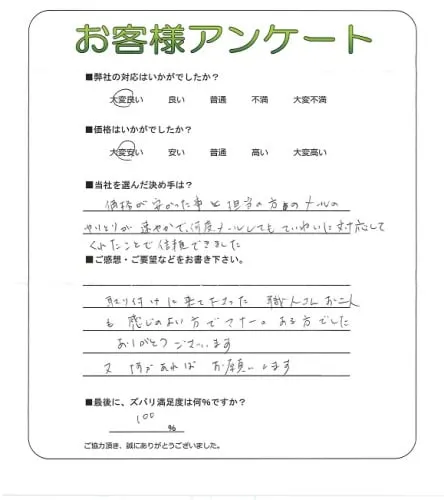 お客様アンケート
■弊社の対応はいかがでしたか?
大変良い 良い 普通 不満 大変不満
■価格はいかがでしたか?
大変安い 安い 普通 高い 大変高い
■当社を選んだ決め手は?
価格が安かった事と担当の方のメールの
やりとりが速やかで、何度メールしてもていねいに対応して
くれたことで信頼できました
■ご感想・ご要望などをお書き下さい。
取り付けに来て下さった 職人さんお二人
も 感じのよい方でマナーのある方でした
ありがとうございます
又何かあれば お願いします
■最後に、ズバリ満足度は何%ですか?
100
%
ご協力頂き、誠にありがとうございました。